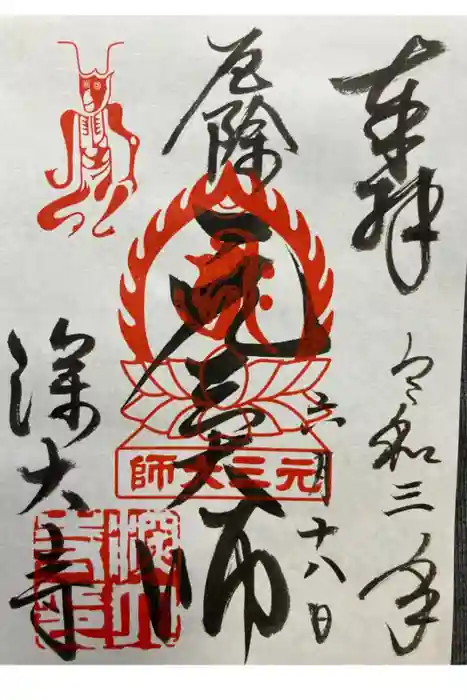 奉拝
令和三年
六月十八日
厄除
元三大師
元三大師
深大寺